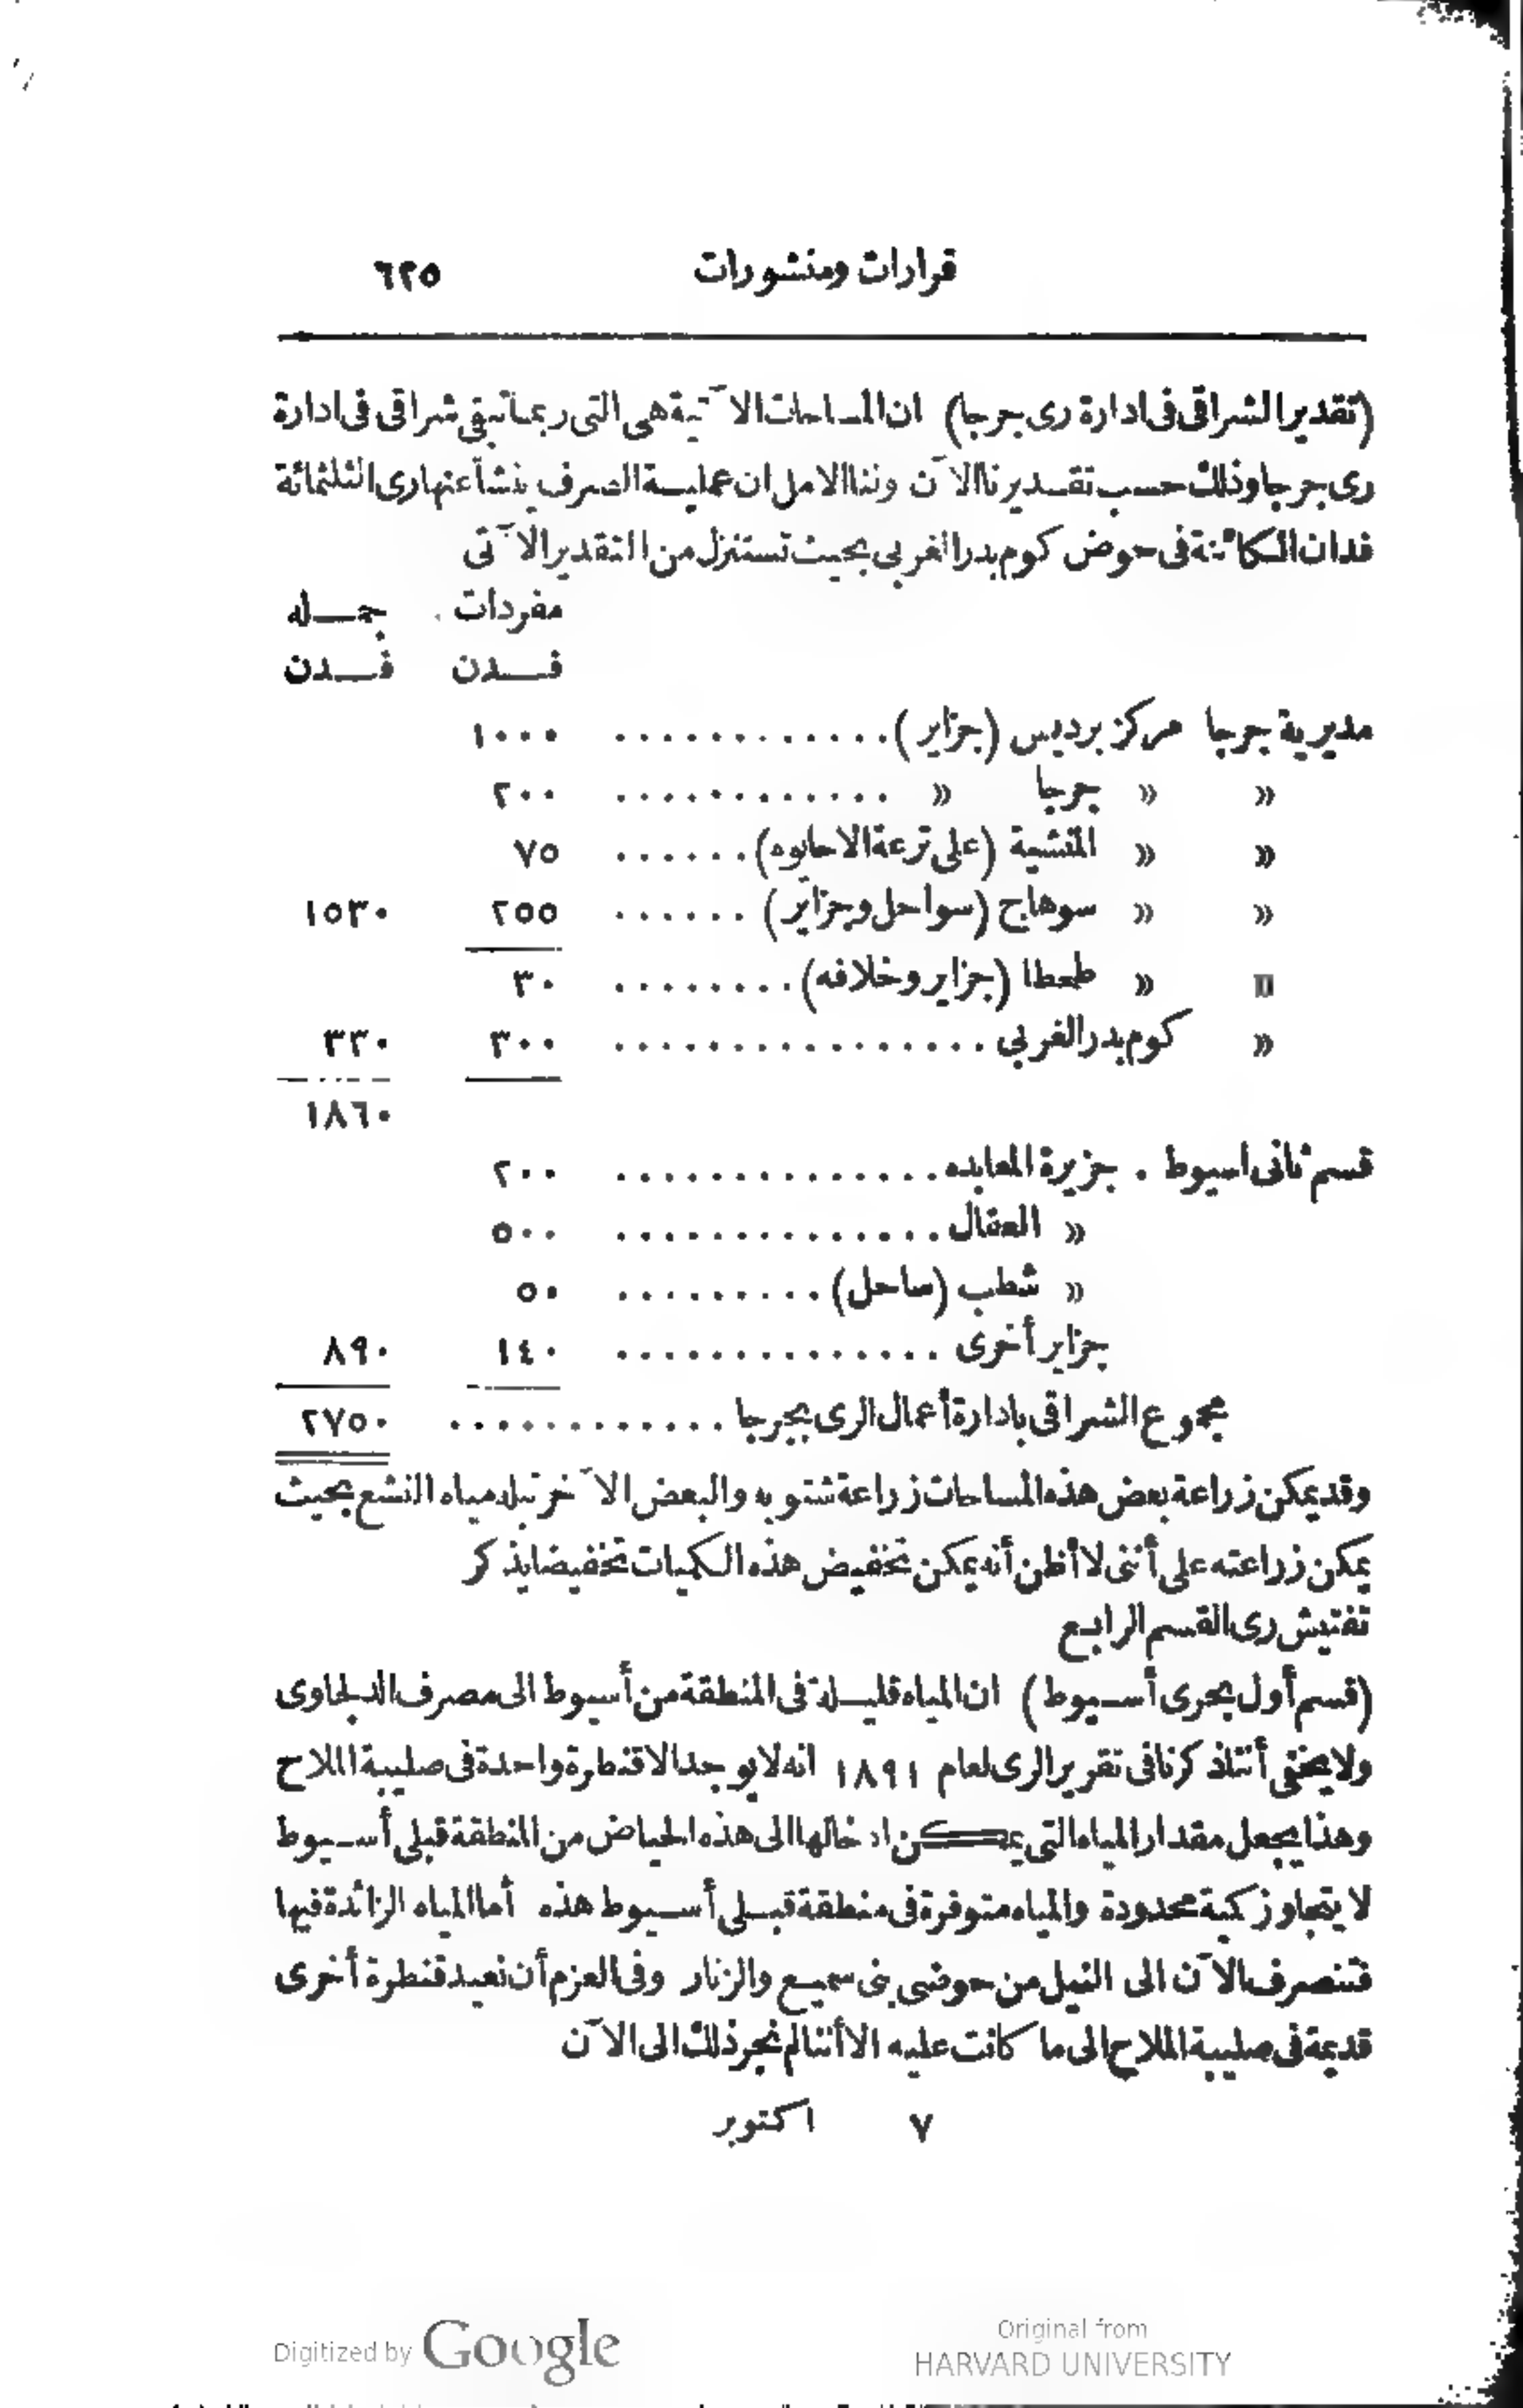 قرارات ومنشورات ٦٢٥
(تقدير الشراقى فى ادارة رى جرجا) ان المساحات الآتية هى التى ربما تبقى شراقى فى ادارة
رى جرجا وذلك حسب تقديرنا الآن ولنا الامل ان عملية الصرف ينشأ عنها رى الثلثمائة
فدان الكائنة فى حوض كوم بدر الغربى بحيث تستنزل من التقدير الآتى
مفردات جمله
فدن فدن
مديرية جرجا مركز برديس (جزاير) ............ ١٠٠٠
» » جرجا » ............ ٢٠٠
» » المنشية (على ترعة الاحايوه) ...... ٧٥
» » سوهاج (سواحل وجزاير) ...... ٢٥٥ ١٥٣٠
» » طحطا (جزاير وخلافه) ........ ٣٠
» كوم بدر الغربى ................ ٣٠٠ ٣٣٠
١٨٦٠
قسم ثانى اسيوط . جزيرة المعابده .............. ٢٠٠
» العقال .............. ٥٠٠
» شطب (ساحل) ......... ٥٠
جزاير أخرى .............. ١٤٠ ٨٩٠
مجموع الشراقى بادارة أعمال الرى بجرجا ............ ٢٧٥٠
وقد يمكن زراعة بعض هذه المساحات زراعة شتويه والبعض الآخر تبله مياه النشع بحيث
يمكن زراعته على أننى لا أظن أنه يمكن تخفيض هذه الكميات تخفيضا يذكر
تفتيش رى القسم الرابع
(قسم أول بحرى أسيوط) ان المياه قليلة فى المنطقة من أسيوط الى مصرف الدلجاوى
ولا يخفى أننا ذكرنا فى تقرير الرى لعام ١٨٩١ انه لا يوجد الا قنطرة واحدة فى صليبة الملاح
وهذا يجعل مقدار المياه التى يمكن ادخالها الى هذه الحياض من المنطقة قبلى أسيوط
لا يتجاوز كمية محدودة والمياه متوفرة فى منطقة قبلى أسيوط هذه أما المياه الزائدة فيها
فتنصرف الآن الى النيل من حوضى بنى سميع والزنار وفى العزم أن نعيد قنطرة أخرى
قديمة فى صليبة الملاح الى ما كانت عليه الا أننا لم نجر ذلك الى الآن
٧ اكتوبر
Digitized by Google
Original from
HARVARD UNIVERSITY